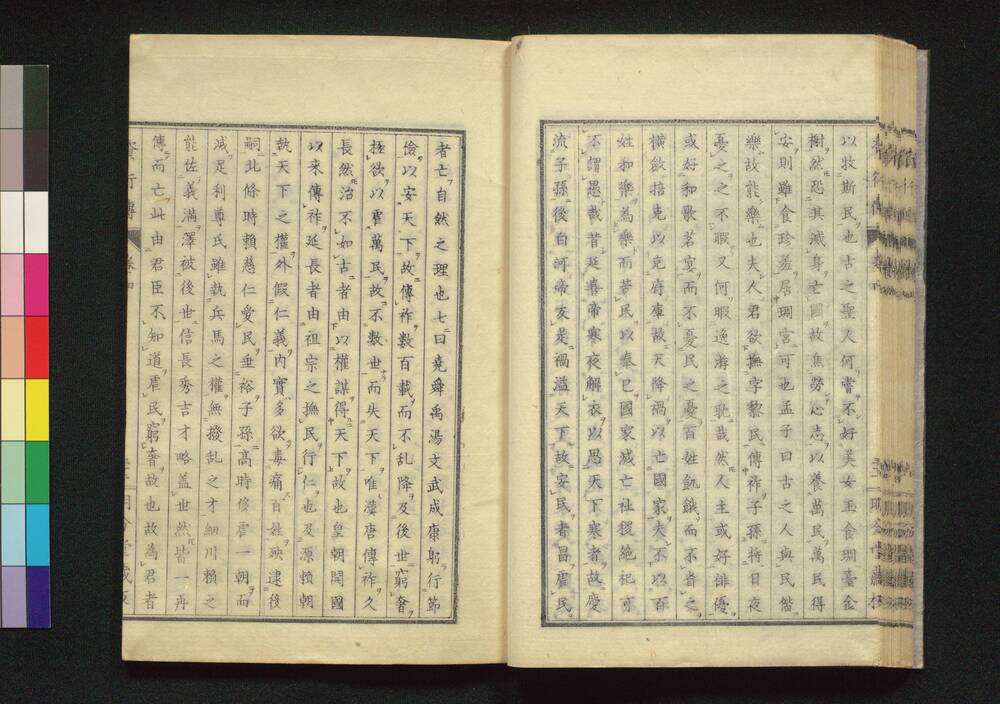 以牧斯民也古之聖人何嘗不好美女玉食瑚臺金
榭然恐其滅身亡國故焦勞心志以養萬民萬民得
安則雖食珍羞居瑚宮可也孟子曰古之人與民偕
樂故能樂也夫人君欲撫字黎民傳祚子孫将日夜
憂之之不暇又何暇逸游之耽哉然人主或好俳優
或好和歌茗宴而不憂民之憂百姓飢餓而不省之
横歛掊克以充府庫故天降禍以亡國家夫不以百
姓和樂為樂而苦民以奉已國家滅亡社稷絶祀可
不謂愚哉昔延喜帝寒夜解衣以思天下寒者故慶
流子孫後白河帝反是禍溢天下故安民者昌虐民
者亡自然之理也七曰堯舜禹湯文武成康躬行節
儉以安天下故傳祚數百載而不乱降及後世窮奢
極欲以虐萬民故不數世而失天下唯漢唐傳祚久
長然治不如古者由以權謀得天下故也皇朝開國
以来傳祚延長者由祖宗之撫民行仁也及源頼朝
執天下之權外假仁義内實多欲毒痛百姓殃逮後
嗣北條時頼慈仁愛民垂裕子孫高時侈虐一朝而
滅足利尊氏雖執兵馬之權無撥乱之才細川頼之
能佐義満澤被後世信長秀吉才略盖世然皆一再
傳而亡此由君臣不知道虐民窮奢故也故為君者